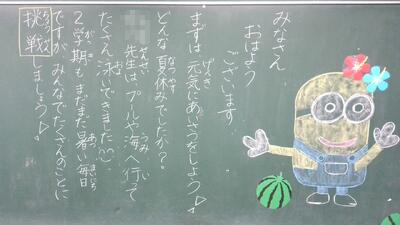 みなさん
おはよう
ございます
まずは元気にあいさつをしよう♪
どんな夏休みでしたか?
先生はプールや海へ行って
たくさん泳いできました
2学期もまだまだ暑い毎日
ですが、みんなでたくさんのことに
挑戦しましょう♪